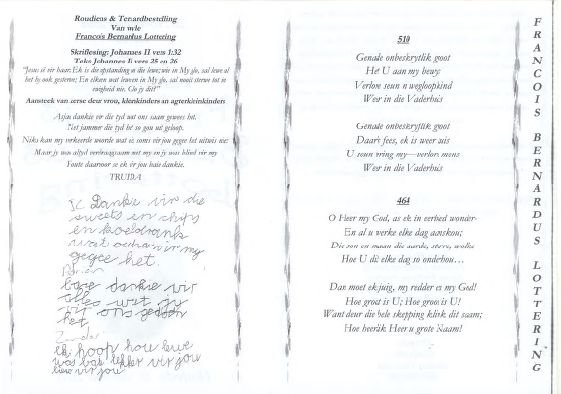 Roudiens & Teraardbestelling
Van wyle
Francois Bernardus Lottering
Skriflesing: Johannes II vers 1:32
Teks Johannes II vers 25 en 26
"Jesus sê vir haar: Ek is die opstanding en die lewe; wie in My glo, sal lewe al
het hy ook gesterwe; En elkeen wat lewe en in My glo, sal nooit sterwe tot in
ewigheid nie. Glo jy dit?"
Aansteek van kerse deur vrou, kleinkinders en agterkleinkinders
dankie vir die tyd wat ons saam gewees het.
Net jammer die tyd het so gou uit geloop.
Niks kan my verkeerde woorde wat ek soms vir jou gegee het uitwis nie;
Maar jy was altyd verdraagsaam met my en jy was blind vir my
Foute daaroor se ek vir jou baie dankie.
TRUDA
Dankie vir die
sweets en chips
en koeldrank
wat vir my
gegee het.
baie dankie vir
alles wat jy
vir ons gedoen
het
ek hoop hou lewe
was baie lekker vir jou
lief vir jou
510
Genade onbeskryflik groot
Het U aan my bewys
Verlore seun n wegloopkind
Weer in die Vaderhuis
Genade onbeskryflik groot
Daar's fees, ek is weer tuis
U seun bring my verlore mens
Weer in die Vaderhuis
464
O Heer my God, as ek in eerbied wonder
En al u werke elke dag aanskou;
Die son en maan die aarde, sterre, wolke
Hoe U dit elke dag so onderhou…
Dan moet ek juig, my redder en my God!
Hoe groot is U; Hoe groot is U!
Want deur die hele skepping klink dit saam;
Hoe heerlik Heer u grote Naam!
FRANCOIS BERNARDUS LOTTERING